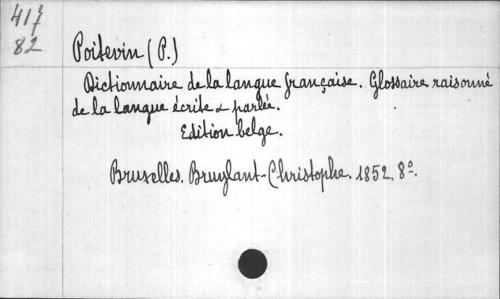 417
82
Poitevin (P.)
Dictionnaire de la langue française. Glossaire raisonné
de la langue écrite & parlée.
Edition belge.
Bruxelles. Bruylant-Christophe. 1852. 8º.